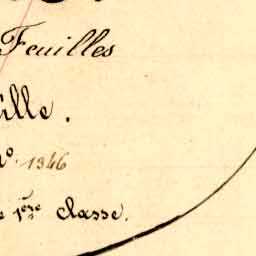 Feuilles
ille.
N° 1346
e 1ère classe.